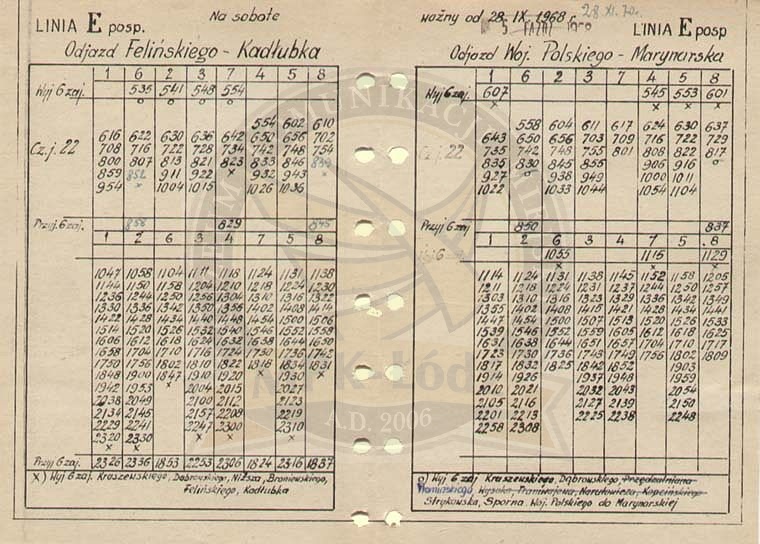 LINIA E posp.
Na sobotę
ważny od 28.IX.1968 r.
28.XI.70.
LINIA E posp
Odjazd Felińskiego - Kadłubka
Odjazd Woj. Polskiego - Marynarska
1 6 2 3 7 4 5 8
Wyj 6 zaj. 535 541 548 554
o o o o
554 602 610
Cz.j. 22 616 622 630 636 642 650 656 702
708 716 722 728 734 742 748 754
800 807 813 821 823 833 846
859 852 911 922 x 932 943 x
954 x 1004 1015 1026 1036
Przyj. 6 zaj. 856 829 845
1 2 6 3 4 7 5 8
1047 1058 1104 1111 1118 1124 1131 1138
1144 1150 1158 1204 1210 1218 1224 1230
1236 1244 1250 1256 1304 1310 1316 1322
1330 1336 1342 1350 1356 1402 1408 1414
1422 1428 1434 1440 1448 1454 1500 1506
1514 1520 1526 1532 1540 1546 1552 1558
1606 1612 1618 1624 1632 1638 1644 1650
1658 1704 1710 1716 1724 1730 1736 1742
1750 1756 1802 1810 1822 1818 1834 1831
1848 1900 1847 1910 1920 x 1930 x
1942 1953 x 2004 2015 2027
2038 2049 2100 2112 2123
2134 2145 2157 2208 2219
2229 2241 2247 2300 2310
2320 2330 x x x
x x
Przyj 6 zaj. 2326 2336 1853 2253 2306 1824 2316 1837
x) Wyj 6 zaj. Kraszewskiego, Dąbrowskiego, Niższa, Broniewskiego,
Felińskiego, Kadłubka
1 2 6 3 7 4 5 8
Wyj 6 zaj. 607 545 553 601
x x x x
558 604 611 617 624 630 637
Cz.j. 22 643 650 656 703 709 716 722 729
735 742 748 755 801 808 822 817
835 830 845 855 906 916 o
927 o 938 949 1000 1011
1022 1033 1044 1054 1104
Przyj 6 zaj 850 837
1 2 6 3 7 4 5 8
1055 1115 1129
x x x
1114 1124 1131 1138 1145 1152 1158 1205
1211 1218 1224 1231 1237 1244 1250 1257
1303 1310 1316 1323 1329 1336 1342 1349
1355 1402 1408 1415 1421 1428 1434 1441
1447 1454 1500 1507 1513 1520 1526 1533
1539 1546 1552 1559 1605 1612 1618 1625
1631 1638 1644 1651 1657 1704 1710 1717
1723 1730 1736 1743 1749 1756 1802 1809
1817 1832 1825 1842 1852 1903
1914 1926 1937 1948 1959
2010 2021 2032 2043 2054
2105 2116 2127 2139 2150
2201 2213 2225 2238 2248
2258 2308
o) Wyj 6 zaj Kraszewskiego, Dąbrowskiego, Przędzalniana
Tramwajowa, Narutowicza, Kopcińskiego
Strykowska, Sporna Woj. Polskiego do Marynarskiej
A.D. 2006